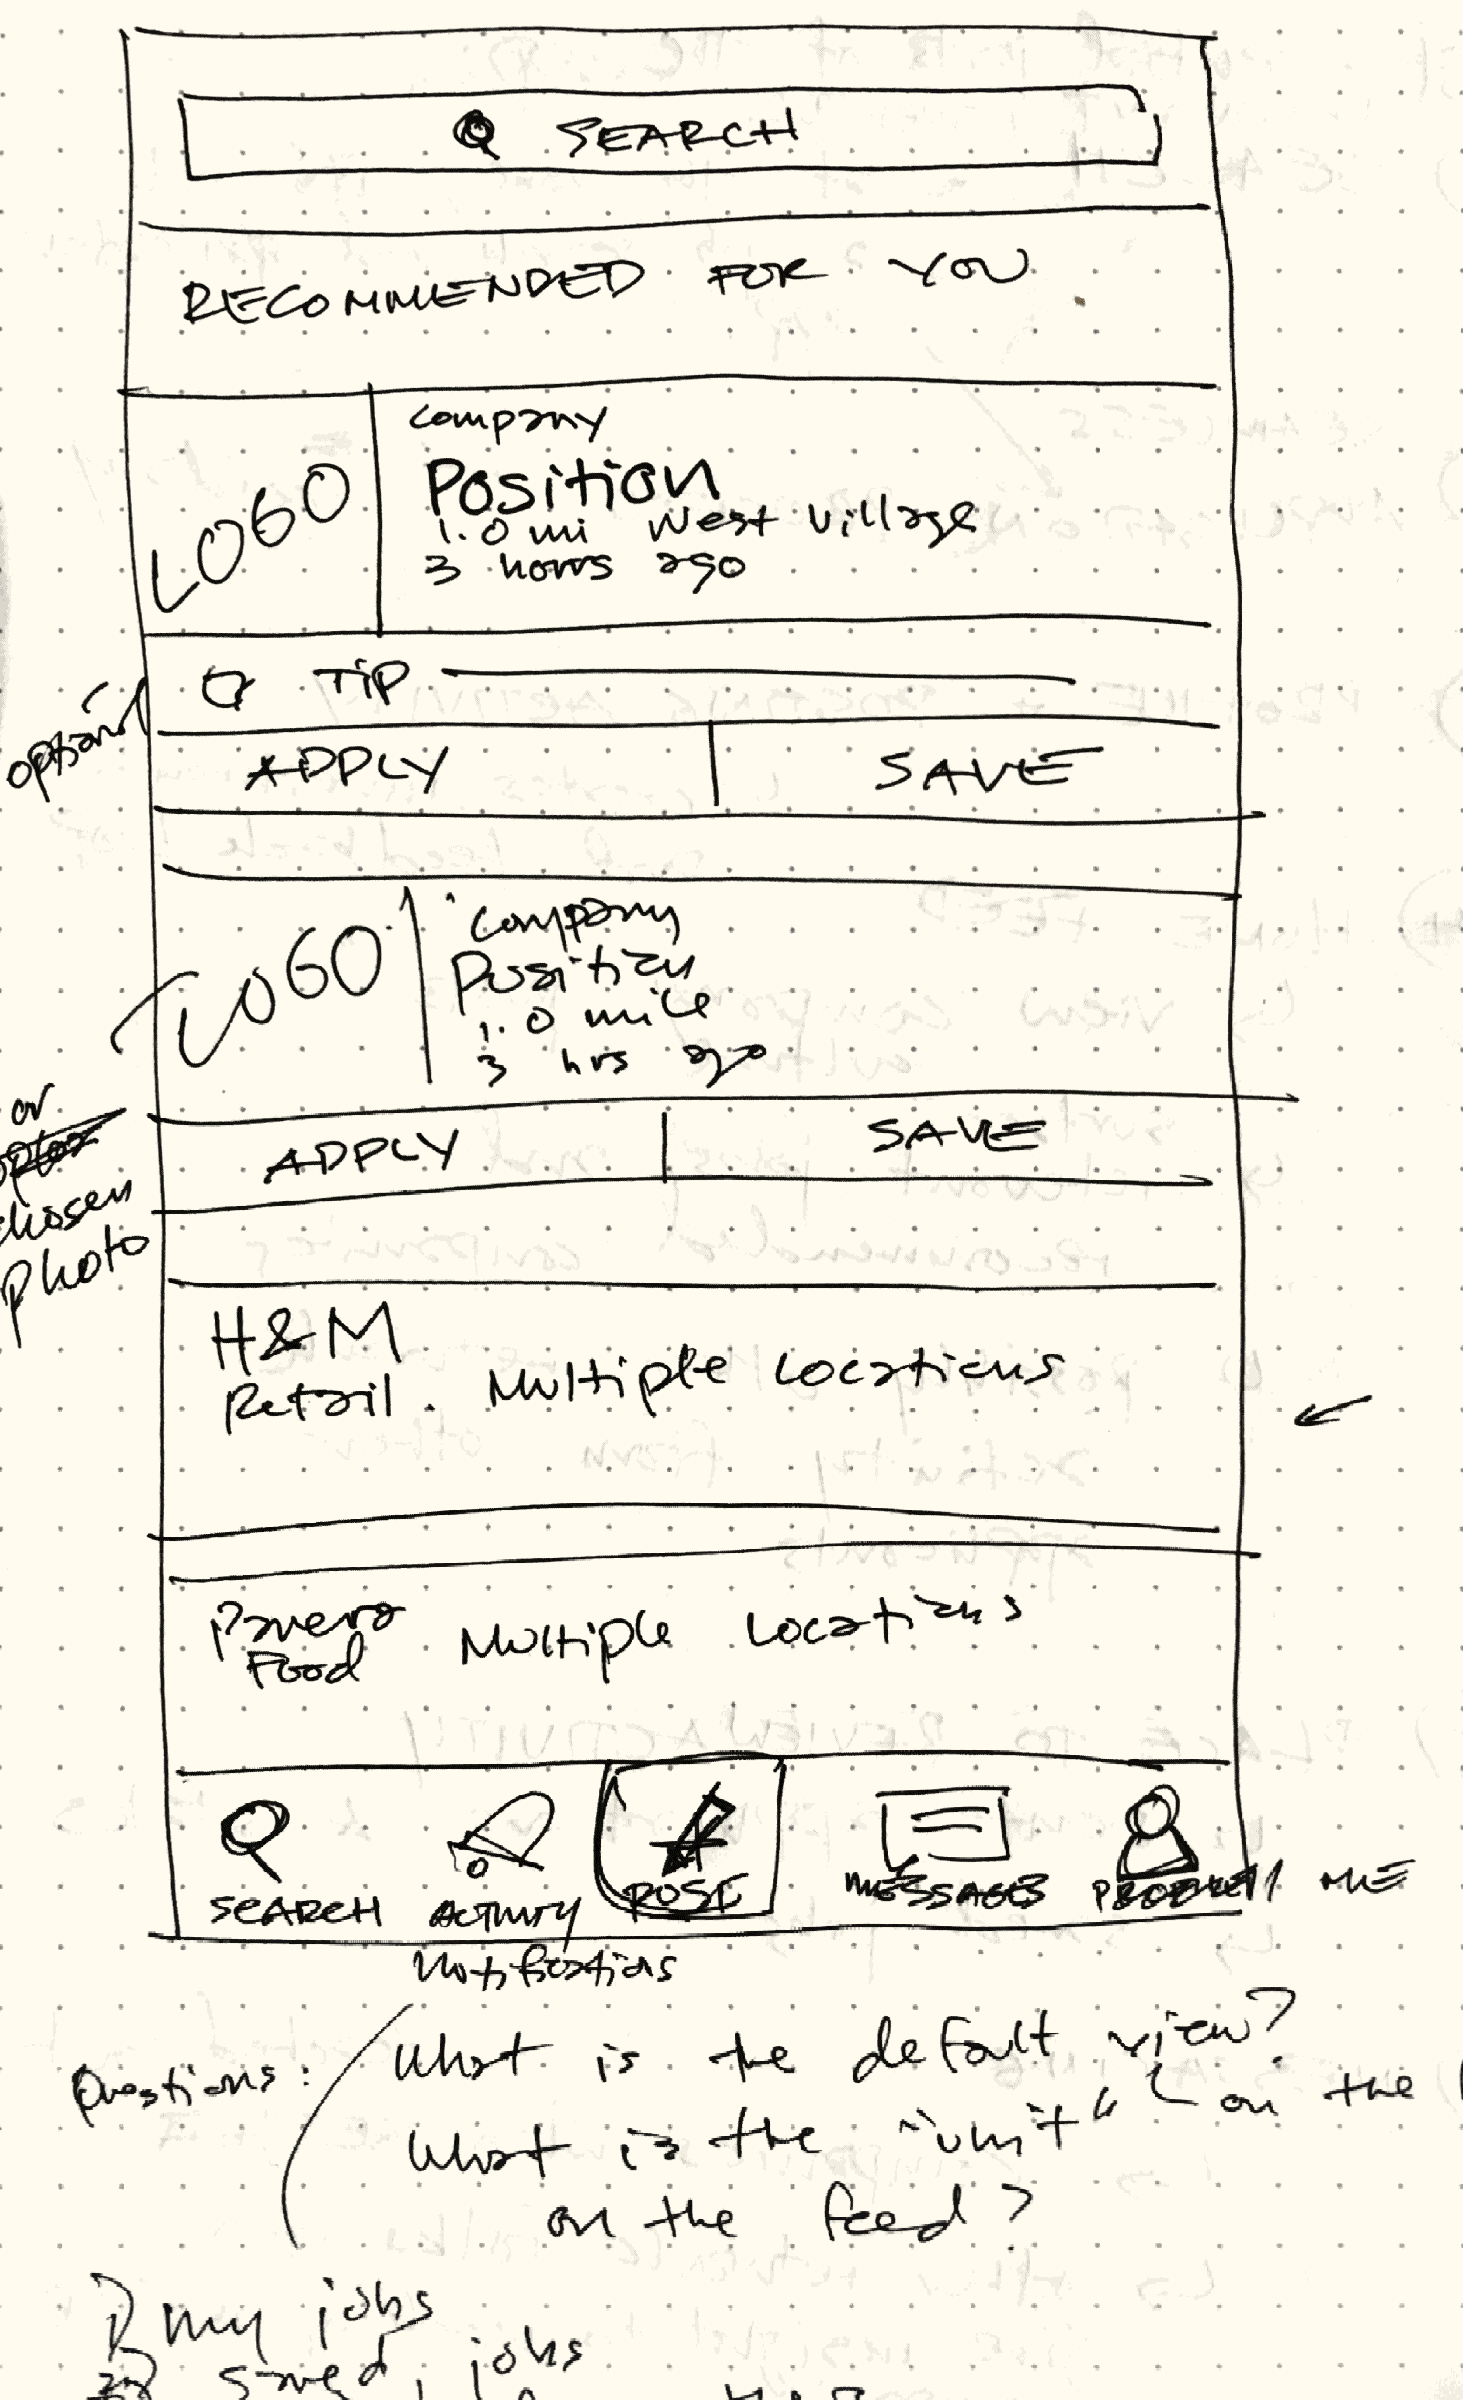 SEARCH
RECOMMENDED FOR YOU
LOGO
Company
Position
1.0 mi West Village
3 hours ago
option
TIP
APPLY SAVE
LOGO
Company
Position
1.0 mile
3 hrs ago
or
chosen
photo
APPLY SAVE
H&M
Retail. Multiple Locations
Panera
Food Multiple Locations
SEARCH ACTIVITY POST MESSAGES PROFILE // ME
Notifications
Questions: What is the default view?
What is the "unit" on the
on the feed?
my jobs
saved jobs